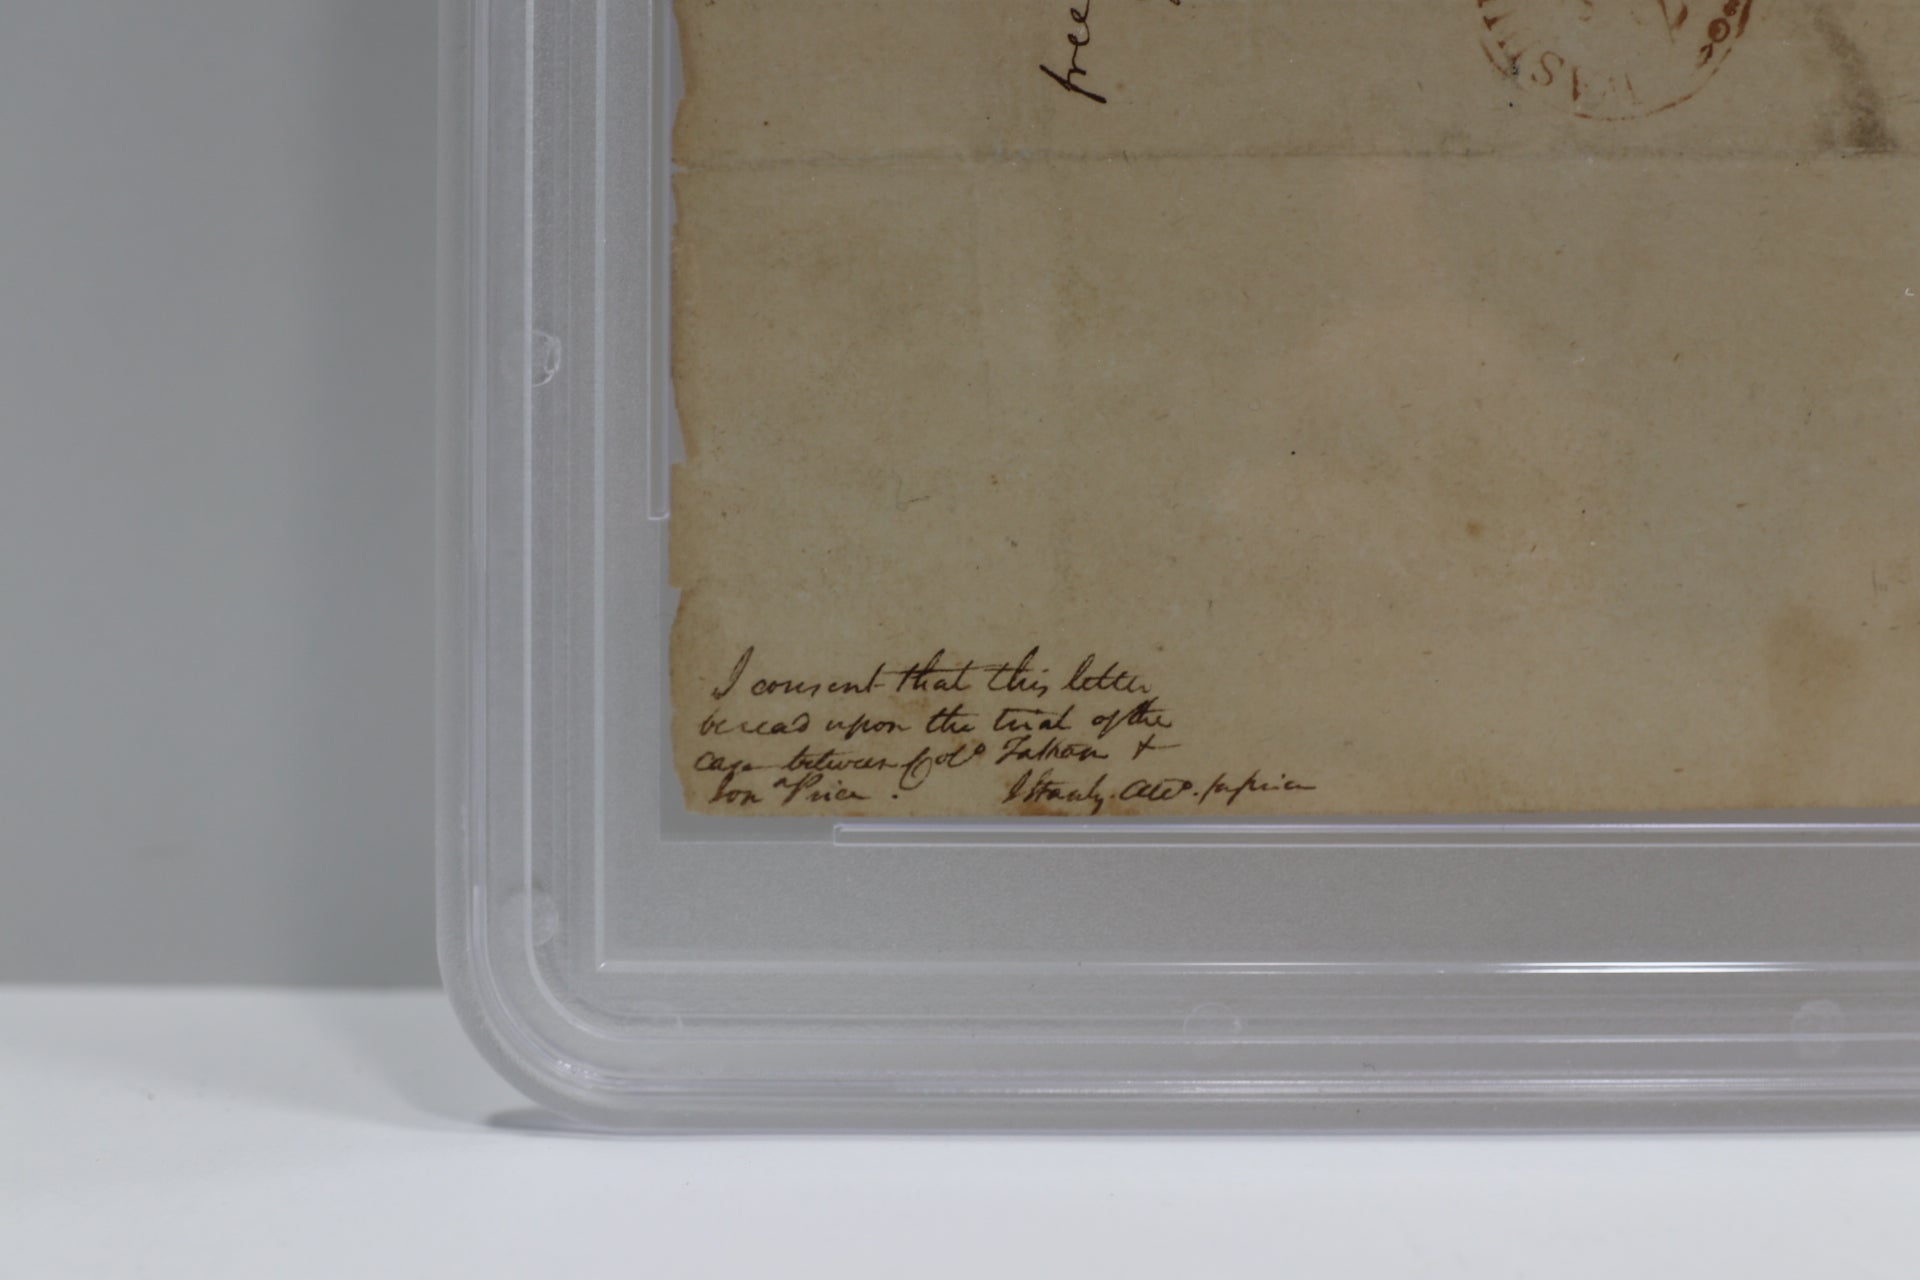 free
WASHI
I consent that this letter
be read upon the trial of the
case between Colo Tatham &
Jon a Price.
J Stanly. Atto. for Price